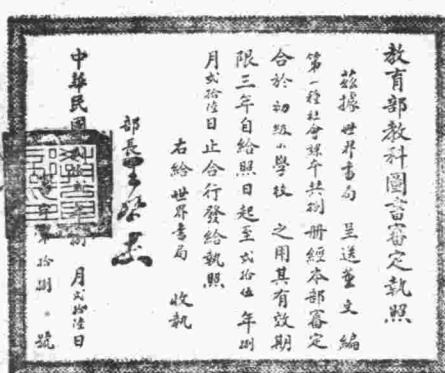 教育部教科圖書審定執照
茲據世界書局 呈送董文編
第一種社會課本共捌册經本部審定
合於初級小學校 之用其有效期
限三年自給照日起至貳拾伍年捌
月貳拾陸日止合行發給執照
右給世界書局 收執
部長王世杰
中華民國 年 月貳拾陸日
字第拾捌號